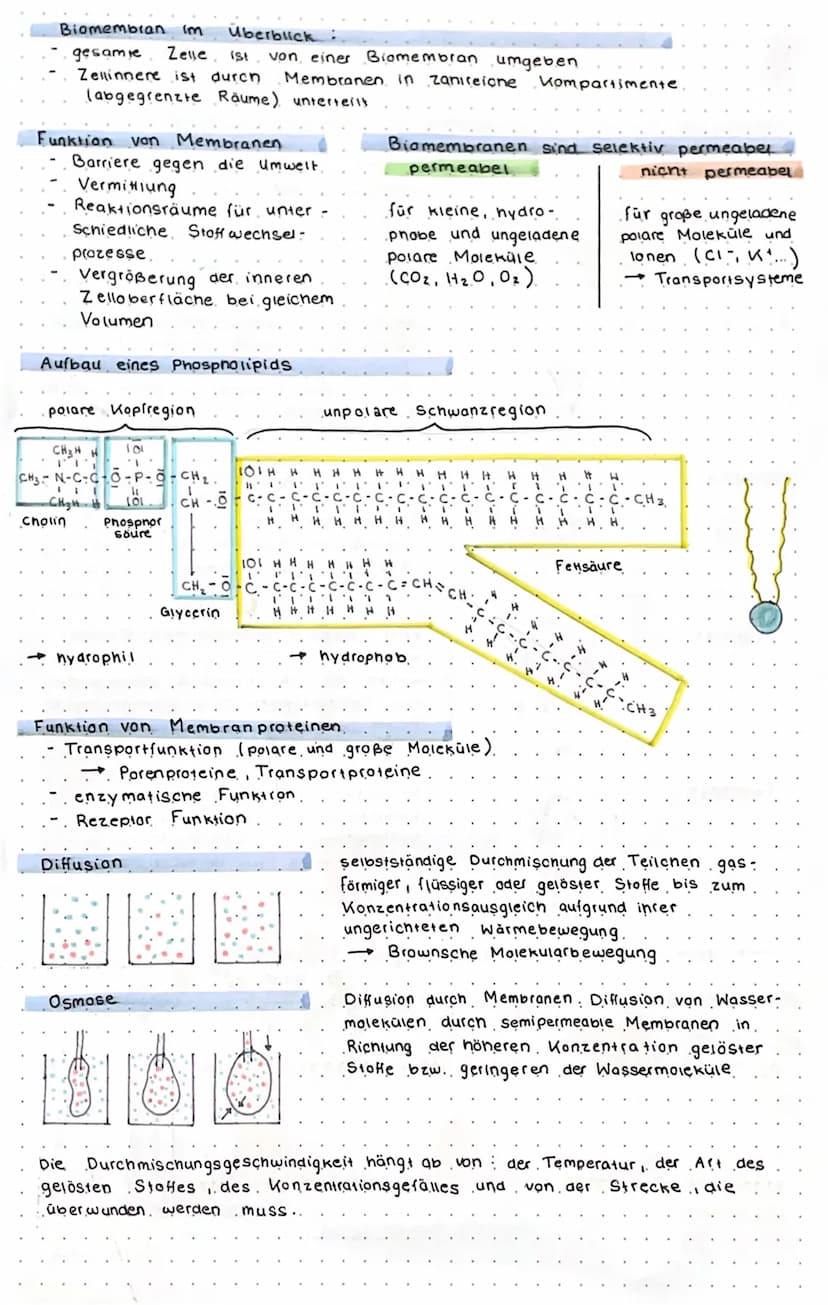 Biomembran im Überblick :
- gesamte Zelle ist von einer Biomembran umgeben
- Zellinnere ist durch Membranen in zahlreiche Kompartimente
(abgegrenzte Räume) unterteilt
Funktion von Membranen
- Barriere gegen die Umwelt
- Vermittlung
- Reaktionsräume für unter-
schiedliche Stoffwechsel-
prozesse
- Vergrößerung der inneren
Zelloberfläche bei gleichem
Volumen
Biomembranen sind selektiv permeabel
permeabel
für kleine, hydro-
phobe und ungeladene
polare Moleküle
(CO₂, H₂O, O₂)
nicht permeabel
für große ungeladene
polare Moleküle und
Ionen (Cl⁻, K⁺...)
→ Transportsysteme
Aufbau eines Phospholipids
polare Kopfregion
unpolare Schwanzregion
CH₃H H
|O|
|O| H H H H H H H H H H H H H H
CH₃-N-C-C-O-P-O-CH₂
CH-O-C-C-C-C-C-C-C-C-C-C-C-C-C-C-C-CH₃
CH₃H H
|O|
H H H H H H H H H H H H H H
Cholin
Phosphor
säure
Fettsäure
|O| H H H H H H H
CH₂-O-C-C-C-C-C-C-C-C=CH=CH-C-C-C-C-C-C-C-CH₃
H H H H H H H
Glycerin
→ hydrophil
→ hydrophob
Funktion von Membranproteinen
- Transportfunktion (polare und große Moleküle)
→ Porenproteine, Transportproteine
- enzymatische Funktion
- Rezeptor Funktion
Diffusion
selbstständige Durchmischung der Teilchen gas-
förmiger, flüssiger oder gelöster Stoffe bis zum
Konzentrationsausgleich aufgrund ihrer
ungerichteten Wärmebewegung
→ Brownsche Molekularbewegung
Osmose
Diffusion durch Membranen. Diffusion von Wasser-
molekülen durch semipermeable Membranen in
Richtung der höheren Konzentration gelöster
Stoffe bzw. geringeren der Wassermoleküle
Die Durchmischungsgeschwindigkeit hängt ab von : der Temperatur, der Art des
gelösten Stoffes, des Konzentrationsgefälles und von der Strecke, die
überwunden werden muss.